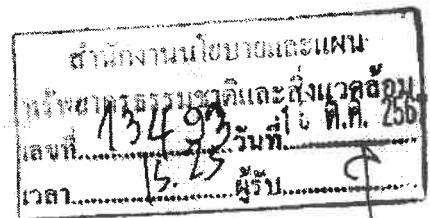 สำนักงานนโยบายและแผน
ทรัพยากรธรรมชาติและสิ่งแวดล้อม
เลขที่ 13493 วันที่ ต.ค. 256
เวลา 15.25 ผู้รับ